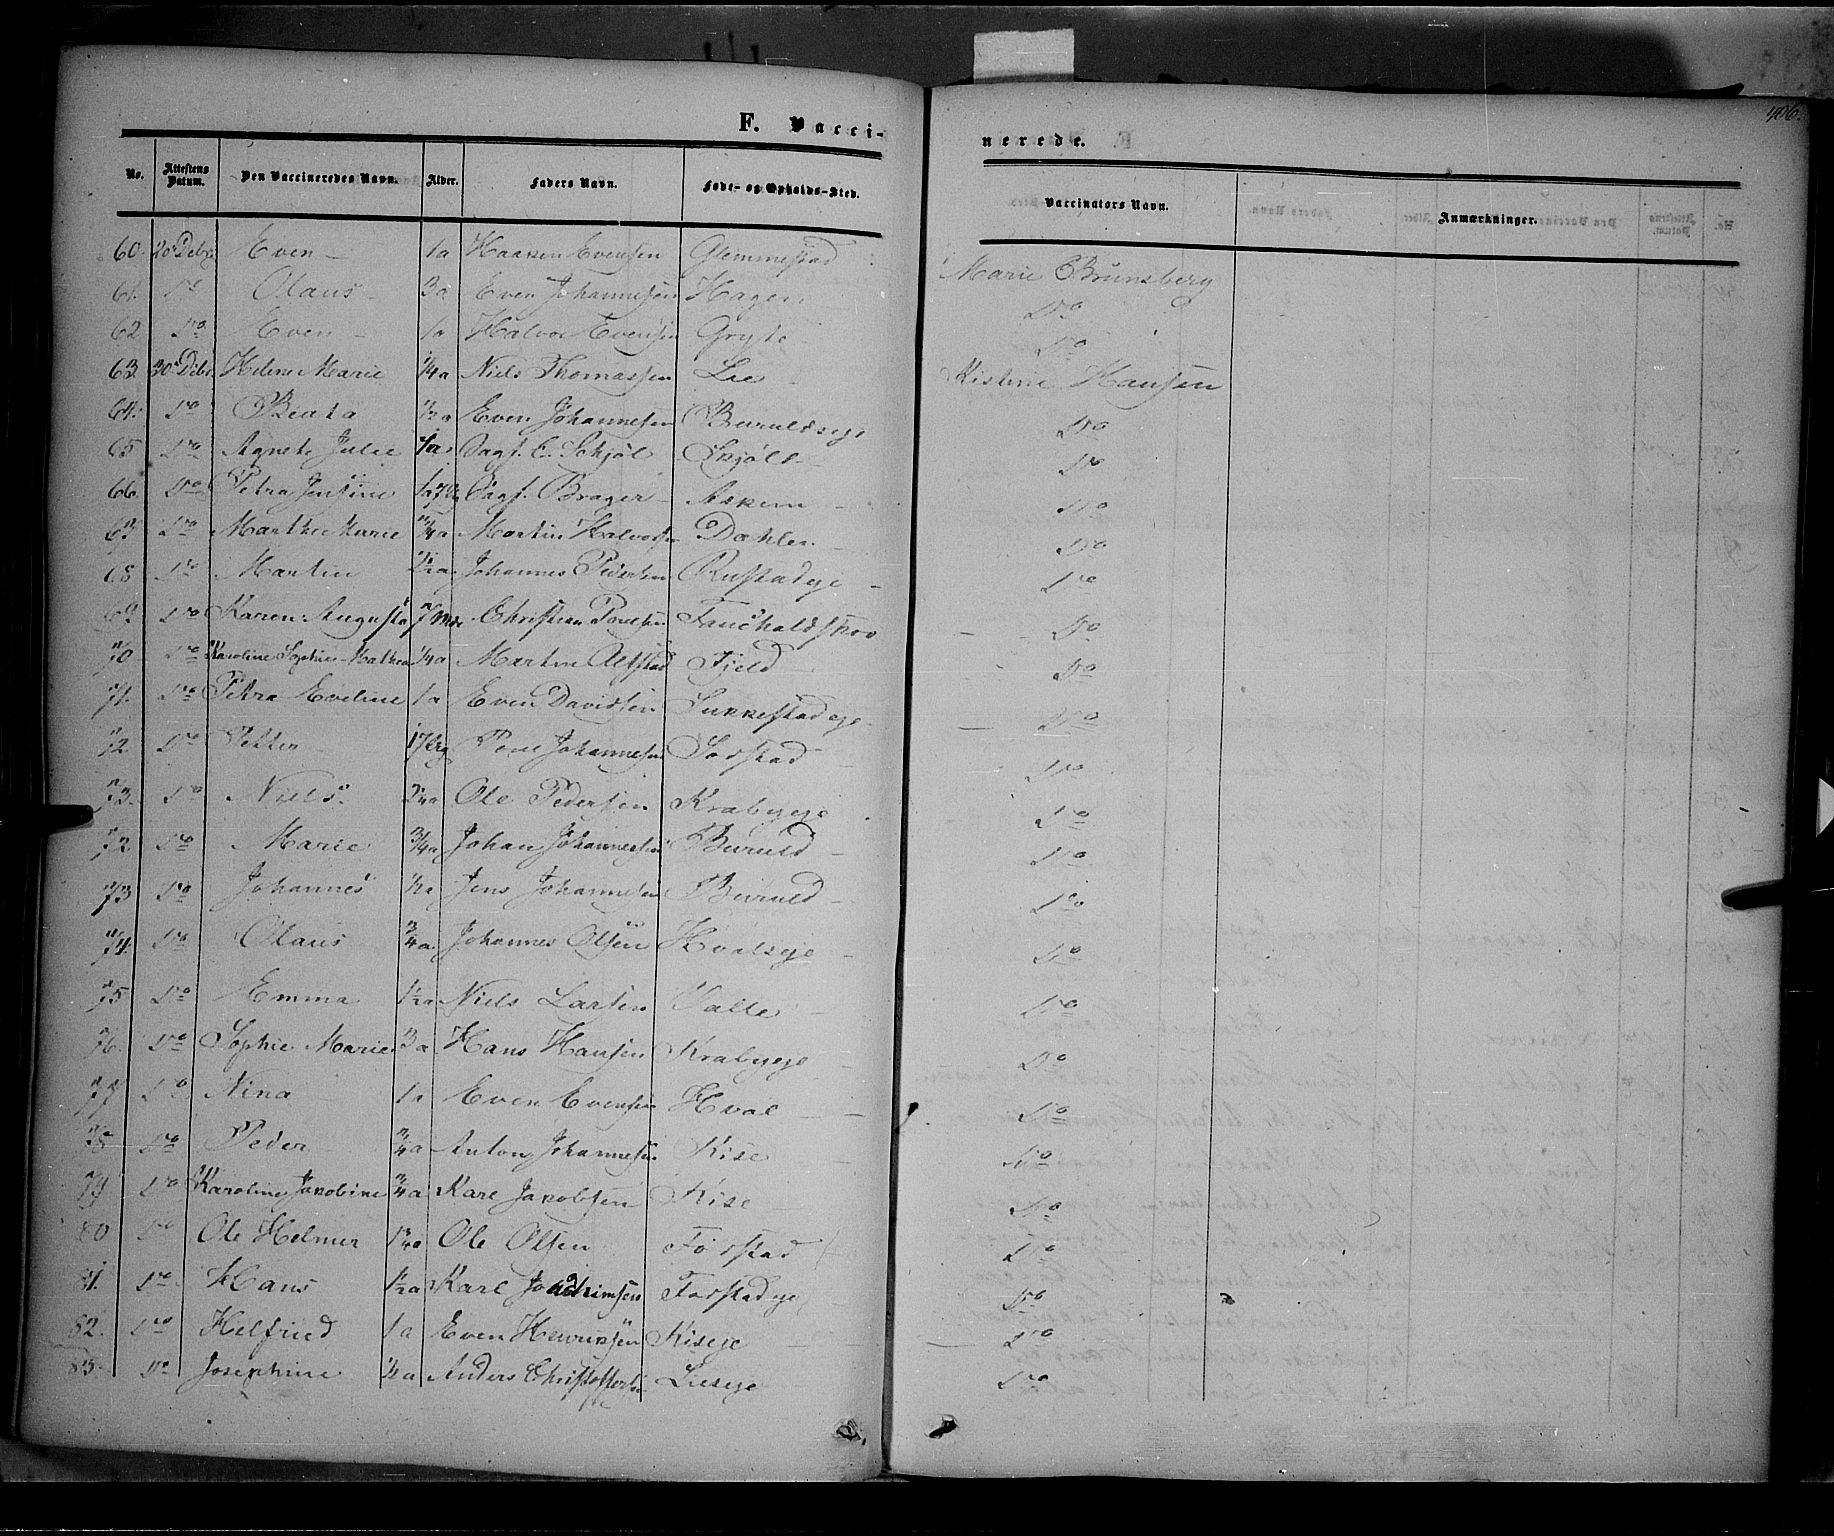 406.
F. Vacci-
nerede.
No. Attestens Datum. Den Vaccineredes Navn. Alder. Faders Navn. Føde- og Opholds-Sted. Vaccinators Navn. Anmærkninger.
60. 20 Debr Even 1a Haaken Evensen Glemmestad Marie Brunsberg
61. Do Olaus 3a Even Johannesen Hagen Do
62 Do Even 1a Halvor Evensen Gryte Do
63. 30 Debr. Helene Marie 1/4a Niels Thomassen Lie Kistine Hansen
64. Do Beata 1/2a Even Johannesen Buruldseje Do
65 Do Agnete Julie Sagf. E. Schjøl Skjøll Do
66. Do Petra Jensine Sagf. Brager Askem Do
67 Do Marthe Marie 3/4a Martin Halvorsen Dahlen Do
68 Do Martin 2 1/2a Johannes Pedersen Rustadeje Do
69 Do Karen Augusta 7 Mdr Christian Povelsen Fauchaldskov Do
70 Do Karoline Sophie Mathea 1/4a Martin Alfstad Fjeld Do
71. Do Petra Eveline 1a Even Davidsen Sukkestadeje Do
72. Do Petter Povel Johannesen Sorstad Do
73. Do Niels Ole Pedersen Krabyeje Do
72. Do Marie 3/4a Johan Johannesen Buruld Do
73 Do Johannes 1/2a Jens Johannesen Buruld Do
74. Do Olaus 3/4a Johannes Olsen Hvalseje Do
75 Do Emma 1 1/2a Niels Larsen Valle Do
76. Do Sophie Marie 3a Hans Hansen Krabyeje Do
77 Do Nina 1a Even Evensen Hval Do
78 Do Peder 3/4a Anton Johannesen Kise Do
79 Do Karoline Jakobine 3/4a Karl Jakobsen Kise Do
80 Do Ole Helmer 1 3/4a Ole Olsen Forstad Do
81. Do Hans 1 1/2a Karl Joachimsen Forstadeje Do
82. Do Helfried 1a Even Henriksen Kiseje Do
83. Do Josephine 1/2a Anders Christoffersen Lieseje Do